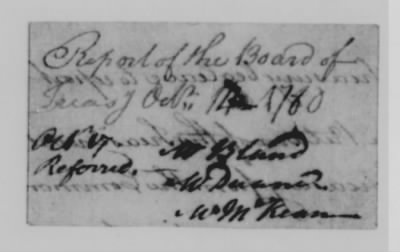 Report of the Board of
Treasy Octr. 1780
Octr. 17
Referred.
Mr Bland
Mr Duane
Mr McKean